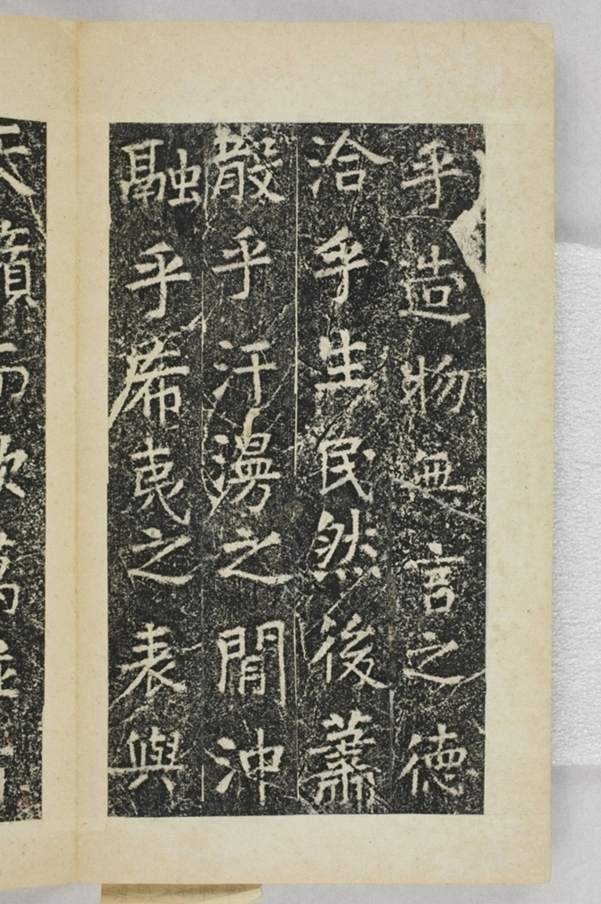 乎造物無言之德
洽乎生民然後蕭
散乎汗漫之閒沖
融乎希夷之表與
天籟而歙萬